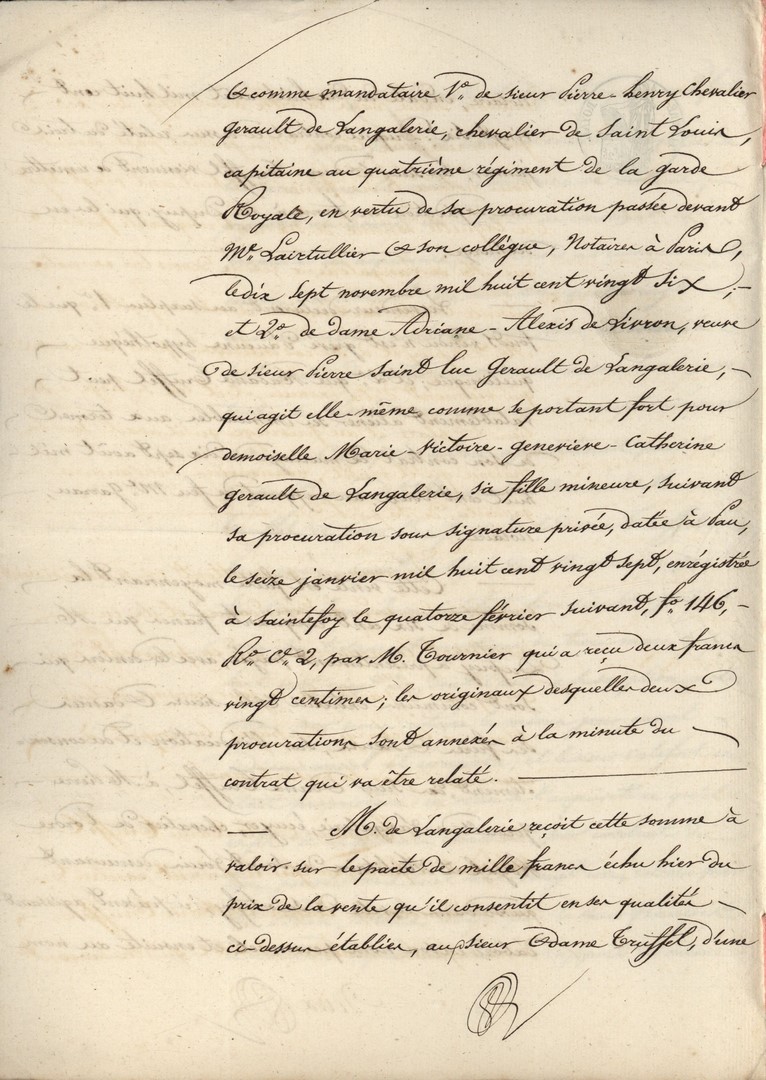 & comme mandataire 1º de sieur Pierre-henry Chevalier
Gerault de Langalerie, chevalier de Saint Louis,
capitaine au quatrième régiment de la garde
Royale, en vertu de sa procuration passée devant
Me. Lairtullier & son collégue, Notaires à Paris,
le dix sept novembre mil huit cent vingt six; -
et 2º de dame Adriane-Alexis de Livron, veuve
de sieur Pierre Saint luc Gerault de Langalerie, -
qui agit elle-même comme se portant fort pour
demoiselle Marie-Victoire-genevieve-Catherine
Gerault de Langalerie, sa fille mineure, suivant
sa procuration sous signature privée, datée à Pau,
le seize janvier mil huit cent vingt sept, enrégistrée
à saintefoy le quatorze février suivant, fº 146, -
Rº Cº 2, par M. Tournier qui a reçu deux francs
vingt centimes; les originaux desquelles deux
procurations sont annexés à la minute du
contrat qui va être relaté.
M. de Langalerie reçoit cette somme à
valoir sur le pacte de mille francs échu hier du
prix de la vente qu'il consentit en ses qualités -
ci-dessus établies, au sieur & dame Truffel, d'une